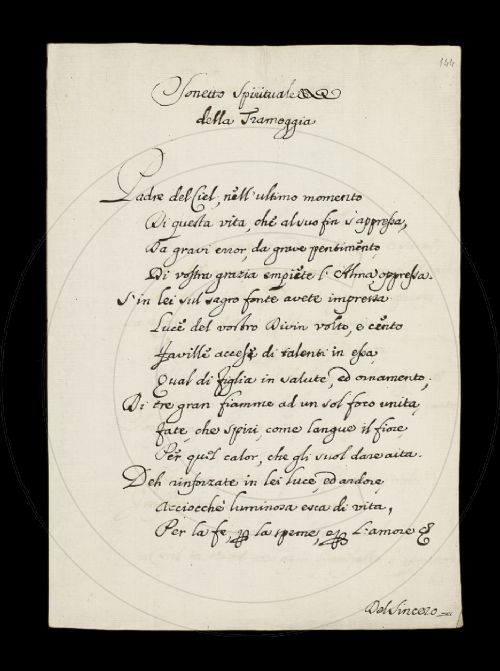 144
Sonetto Spirituale
della Tramoggia
Padre del Ciel, nell' ultimo momento
Di questa vita, che al suo fin s'appressa,
Da gravi error, da grave pentimento,
Di vostra grazia empiete l'Alma oppressa.
S' in lei sul sagro fonte avete impressa
Luce del vostro Divin volto, e cento
faville accese di talenti in essa,
Qual di figlia in salute, ed ornamento,
Di tre gran fiamme ad un sol foco unita,
fate, che spiri, come langue il fiore
Per quel calor, che gli suol dare aita.
Deh rinforzate in lei luce, ed ardore,
Acciocchè luminosa esca di vita,
Per la fe, la speme, L'amore
Del Sincero